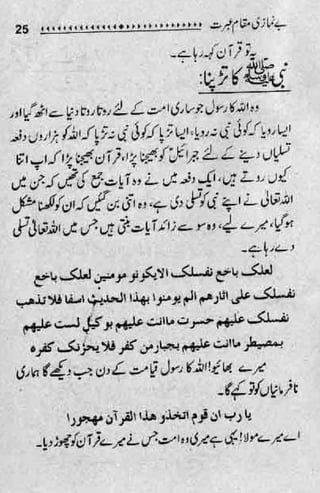 بے نمازی مقام عبرت 25
یہ تو قرآن کہہ رہا ہے۔
نبی ﷺ کا تڑپنا:
وہ اللہ کا رسول جو ساری امت کے لئے روتا روتا دنیا سے اٹھ گیا اور
ایسا رویا کہ کوئی نبی نہ رویا، ایسا تڑپا کہ کوئی نبی نہ تڑپا کہ اللہ کو ہزاروں دفعہ
تسلیاں دینے کے لئے جبرائیلؑ کو بھیجنا پڑا، قرآن بھیجنا پڑا کہ اپ اتنا
کیوں روتے ہیں، ایک دفعہ میں نے وہ آیات جمع کی تھیں کہ جن میں
اللہ تعالیٰ نے اپنے نبی کو تسلی دی ہے، وہ اتنی بن گئیں کہ ان کو لکھنا مشکل
ہو گیا، میرے لیے، وہ سو سے زائد آیات بنتی ہیں جس میں اللہ تعالیٰ تسلی
دے رہا ہے۔
لعلک باخع نفسلک الایکونو مومنین لعلک باخع
نفسلک علی اثارھم الم یومنوا بھذا الحدیث اسفا فلا تذھب
نفسلک علیھم حسرت ماانت علیھم بوکیل لست علیھم
بمصیطر ماانت علیھم بجبارمن کفر فلا یحزنک کفرہ
میرے بھائیو! اللہ کا رسول قیامت کے دن جب دیکھے گا ہماری
نافرمانیاں کو تو کہے گا۔
یا رب ان قوم اتخذو ھذا القرآن مھجورا
اے میرے مولا! یہی ہے میری وہ امت جس نے میرے قرآن کو چھوڑ دیا۔